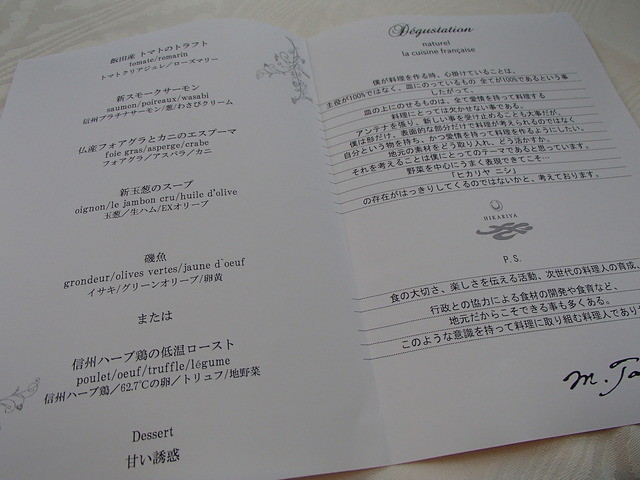 飯田産 トマトのトラフト
tomate/remarin
トマトクリアジュレ／ローズマリー
新スモークサーモン
saumon/poireaux/wasabi
信州プラチナサーモン／葱／わさびクリーム
仏産フォアグラとカニのエスプーマ
foie gras/asperge/crabe
フォアグラ／アスパラ／カニ
新玉葱のスープ
oignon/le jambon cru/huile d'olive
玉葱／生ハム/EXオリーブ
磯魚
grondeur/olives vertes/jaune d`oeuf
イサキ/グリーンオリーブ/卵黄
または
信州ハーブ鶏の低温ロースト
poulet/oeuf/truffle/légume
信州ハーブ鶏／62.7℃の卵／トリュフ/地野菜
Dessert
甘い誘惑
Dégustation
naturel
la cuisine française
僕が料理を作る時、心掛けていることは、
主役が100%ではなく、皿にのっているもの 全てが100%であるという事
したがって、
皿の上にのせるものは、全て愛情を持って料理する
料理にとっては欠かせない事である。
アンテナを張り、新しい事を受け止めることも大事だが、
僕は形だけ、表面的な部分だけで料理が考えられるのではなく
自分という物を持ち、かつ愛情を持って料理を作るようにしたい。
地元の素材をどう取り入れ、どう活かすか。
それを考えることは僕にとってのテーマであると思っています。
野菜を中心にうまく表現できてこそ…
「ヒカリヤ ニシ」
の存在がはっきりしてくるのではないかと、考えております。
HIKARIYA
P.S.
食の大切さ、楽しさを伝える活動、次世代の料理人の育成、
行政との協力による食材の開発や食育など、
地元だからこそできる事も多くある。
このような意識を持って料理に取り組む料理人であり